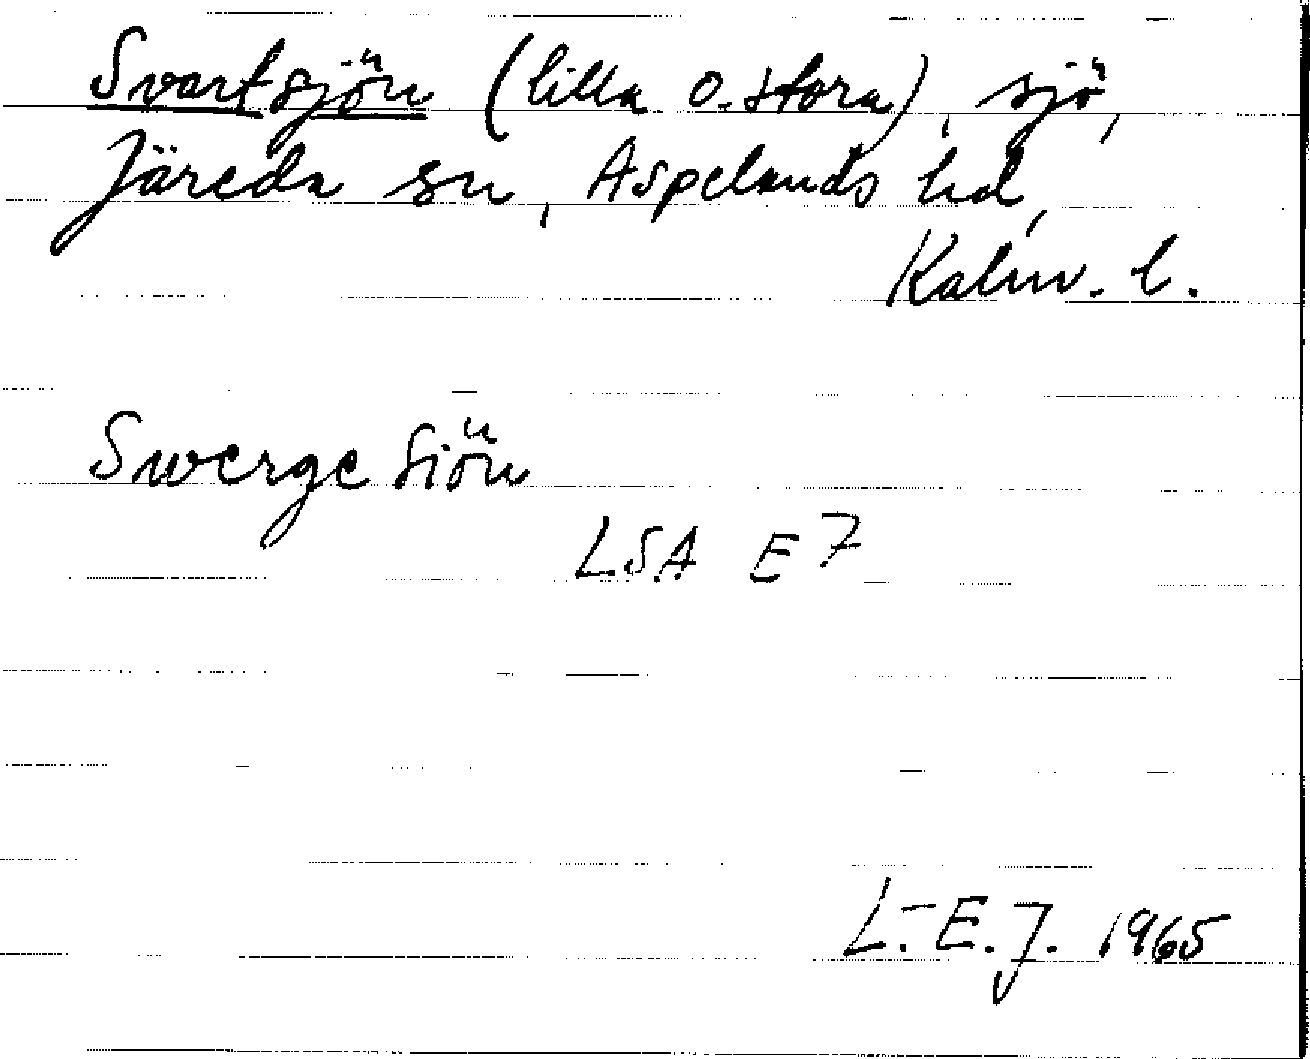 Svartsjön (lilla o. stora), sjö,
Järeda sn, Aspelands hd,
Kalm. l.
Swerge Siön
LSA E7
L.-E. J. 1965